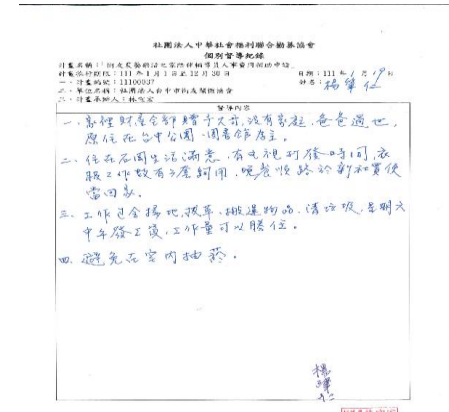 社團法人中華社會福利聯合勸募協會
個別督導紀錄
計畫執行期限：111年1月1日至12月30日
日期：111年1月19日
一、計畫編號：11100037
姓名：楊肇仁
二、單位名稱：社團法人台中市街友關懷協會
三、計畫承辦人：林
督導內容
一、高 財產全部 予大哥，沒有家庭，爸爸過世，
原住在台中公園，圖書館為主。
二、住在石岡生活滿意，有電視打發時間，衣
服工作教有 套夠用，晚餐順路 買便
當回家。
三、工作包含掃地、拔草、搬運物品、清垃圾，星期六
中午發工資，工作量可以勝任。
四、避免在室內抽菸。